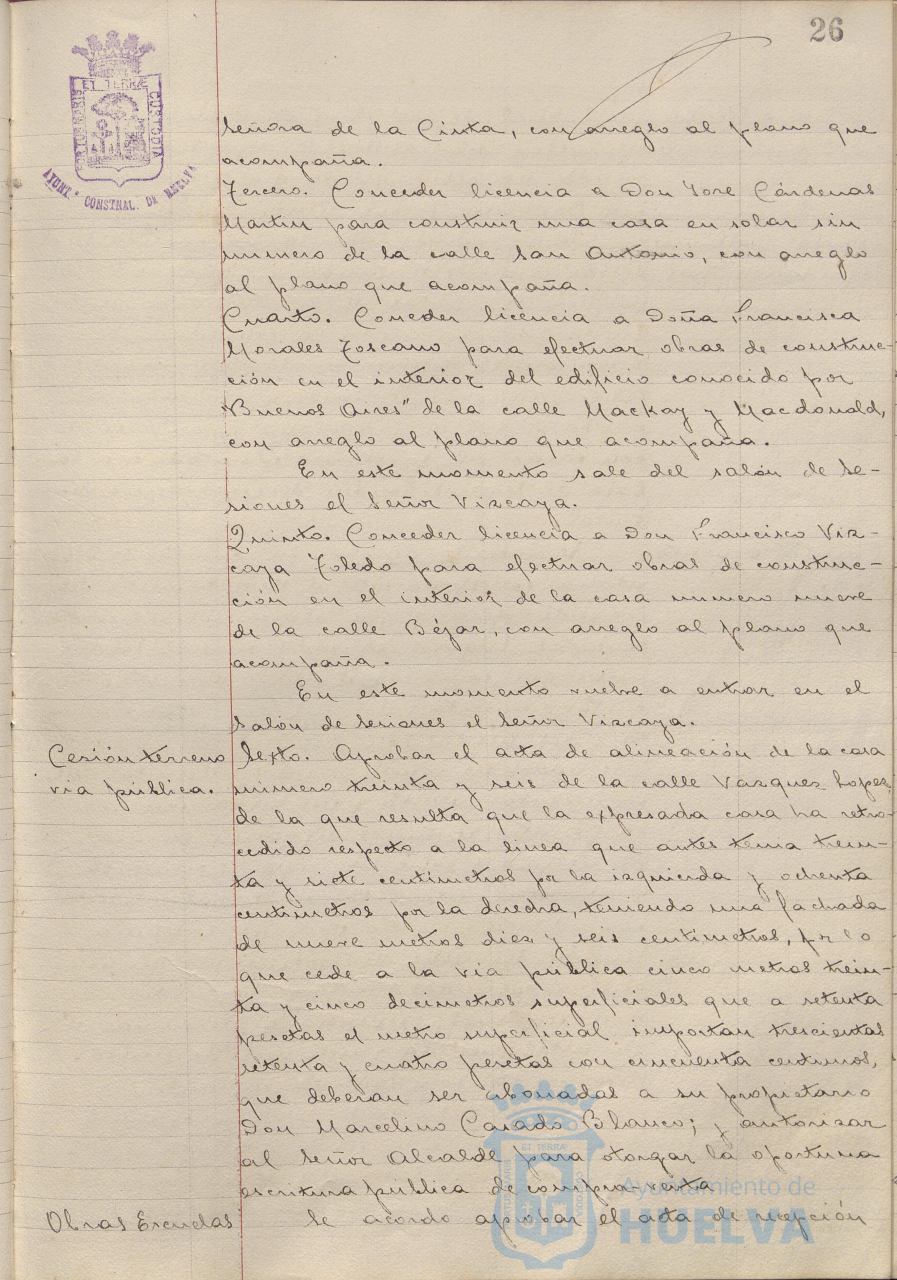 26
PORTUS MARIS
ET TERRÆ
CUSTODIA
AYUNT. CONSTNAL. DE HUELVA
Señora de la Cinta, con arreglo al plano que
acompaña.
Tercero. Conceder licencia a Don Jose Cárdenas
Martin para construir una casa en solar sin
numero de la calle San Antonio, con arreglo
al plano que acompaña.
Cuarto. Conceder licencia a Doña Francisca
Morales Toscano para efectuar obras de construc-
ción en el interior del edificio conocido por
"Buenos Aires" de la calle Mackay y Macdonald,
con arreglo al plano que acompaña.
En este momento sale del salón de se-
siones el Señor Vizcaya.
Quinto. Conceder licencia a Don Francisco Viz-
caya Toledo para efectuar obras de construc-
ción en el interior de la casa numero nueve
de la calle Béjar, con arreglo al plano que
acompaña.
En este momento vuelve a entrar en el
salón de sesiones el Señor Vizcaya.
Cesión terreno
via pública.
Sexto. Aprobar el acta de alineación de la casa
numero treinta y seis de la calle Vazquez Lopez,
de la que resulta que la expresada casa ha retro-
cedido respecto a la linea que antes tenia trein-
ta y siete centimetros por la izquierda y ochenta
centimetros por la derecha, teniendo una fachada
de nueve metros diez y seis centimetros, por lo
que cede a la via pública cinco metros trein-
ta y cinco decimetros superficiales que a setenta
pesetas el metro superficial importan trescientas
setenta y cuatro pesetas con cincuenta centimos,
que deberan ser abonadas a su propietario
Don Marcelino Casado Blanco; y autorizar
al Señor Alcalde para otorgar la oportuna
escritura pública de compra-venta
Obras Escuelas
Se acordo aprobar el acta de recepción
Ayuntamiento de
HUELVA